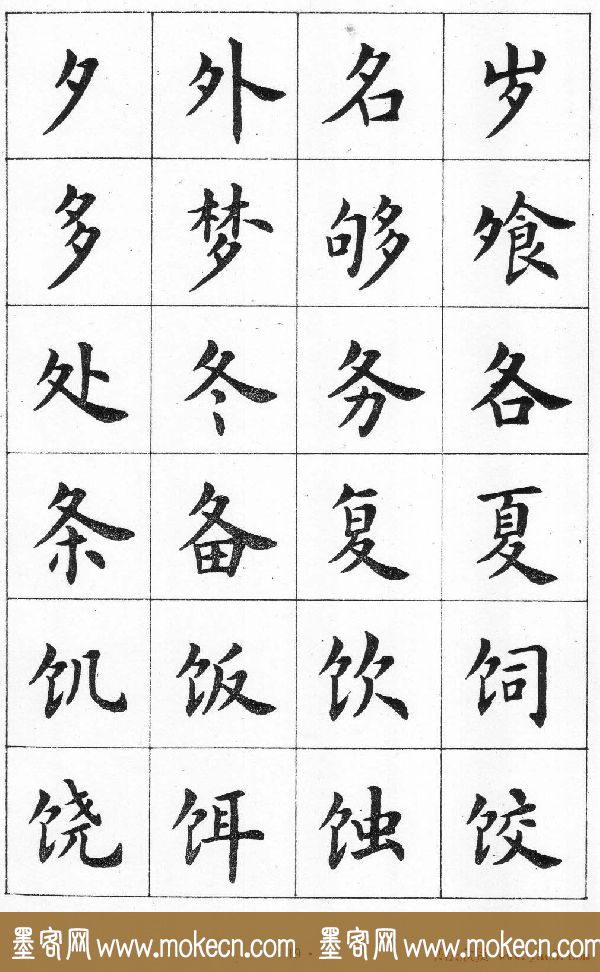 夕外名岁
多梦够飧
处冬务各
条备复夏
饥饭饮饲
饶饵蚀饺
墨客网 www.mokecn.com 墨客网 www.mokecn.com